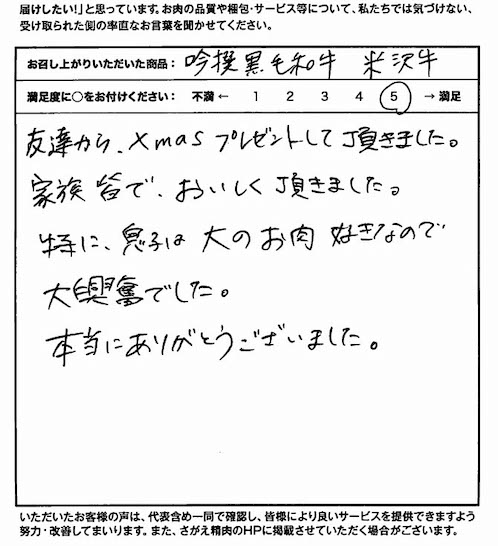 届けしたい!」と思っています。お肉の品質や梱包・サービス等について、私たちでは気づけない、
受け取られた側の率直なお言葉を聞かせてください。
お召し上がりいただいた商品: 吟撰黒毛和牛 米沢牛
満足度に○をお付けください: 不満 ← 1 2 3 4 5 → 満足
友達から、Xmasプレゼントして頂きました。
家族皆で、おいしく頂きました。
特に、息子は大のお肉好きなので
大興奮でした。
本当にありがとうございました。
いただいたお客様の声は、代表含め一同で確認し、皆様により良いサービスを提供できますよう
努力・改善してまいります。また、さがえ精肉のHPに掲載させていただく場合がございます。